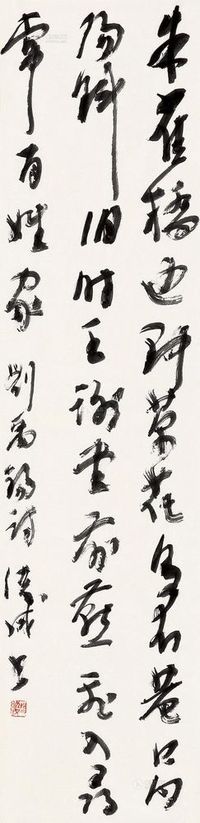 朱雀橋边野草花乌衣巷口夕
陽斜旧时王謝堂前燕飛入尋
常百姓家 劉禹錫詩